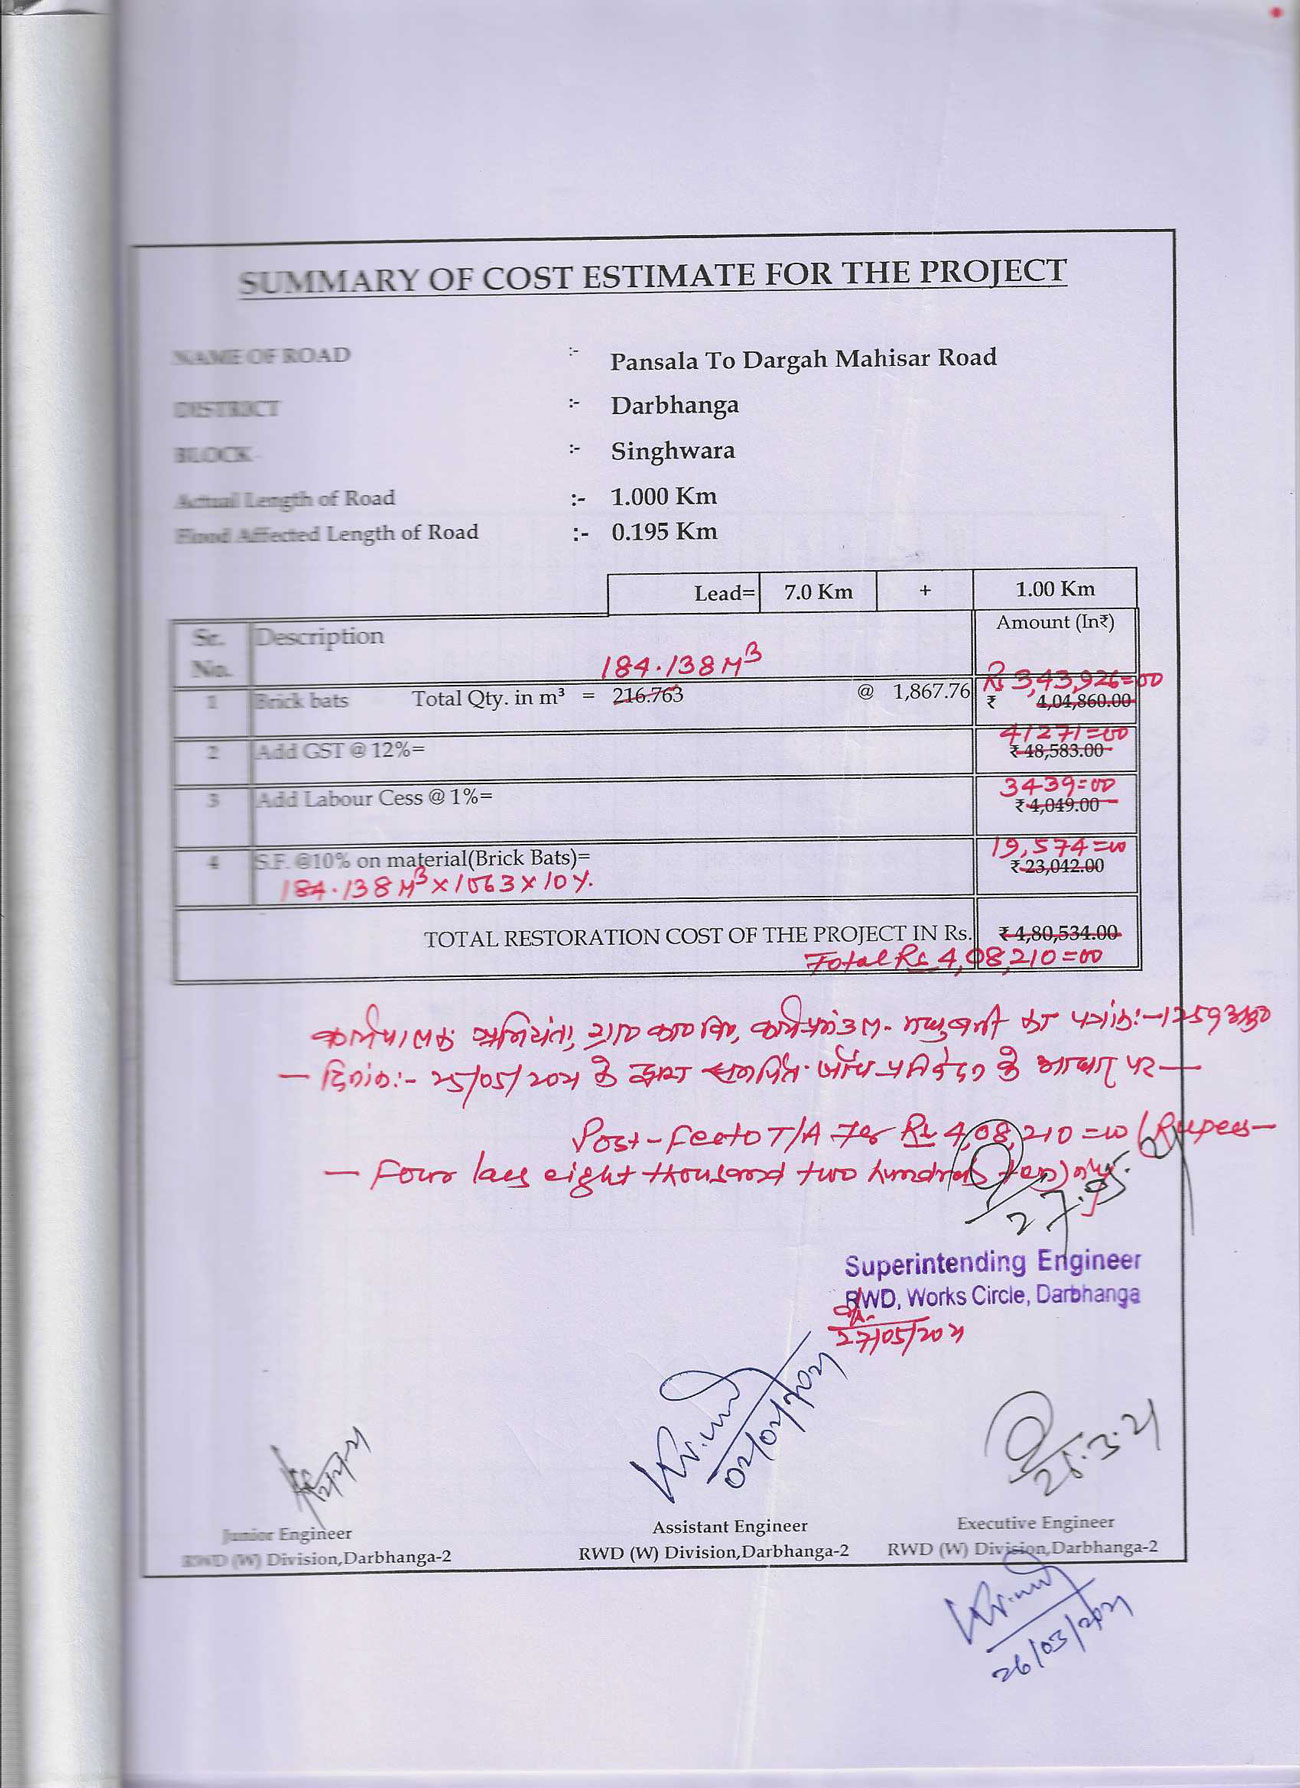 SUMMARY OF COST ESTIMATE FOR THE PROJECT
NAME OF ROAD :- Pansala To Dargah Mahisar Road
DISTRICT :- Darbhanga
BLOCK :- Singhwara
Actual Length of Road :- 1.000 Km
Flood Affected Length of Road :- 0.195 Km
Lead= 7.0 Km + 1.00 Km
Sr. No. Description Amount (In₹)
184.138 M³
Rs 3,43,926=00
1 Brick bats Total Qty. in m³ = 216.763 @ 1,867.76 ₹ 4,04,860.00
41271=00
2 Add GST @ 12%= ₹ 48,583.00
3439=00
3 Add Labour Cess @ 1%= ₹ 4,049.00
19,574=00
4 S.F. @10% on material(Brick Bats)= ₹ 23,042.00
184.138 M³ x 1063 x 10%.
TOTAL RESTORATION COST OF THE PROJECT IN Rs. ₹ 4,80,534.00
Total Rs 4,08,210=00
कार्यपालक अभियंता, का पत्रांक:-1259
- दिनांक:- 25/05/2021 के द्वारा समर्पित जाँच प्रतिवेदन के आधार पर -
Post-fecto T/A for Rs 4,08,210=00 (Rupees-
- four lacs eight thousand two hundred ten) only.
27.05.21
Superintending Engineer
RWD, Works Circle, Darbhanga
27/05/2021
02/02/2021
26.3.21
Junior Engineer
RWD (W) Division,Darbhanga-2
Assistant Engineer
RWD (W) Division,Darbhanga-2
Executive Engineer
RWD (W) Division,Darbhanga-2
26/03/2021